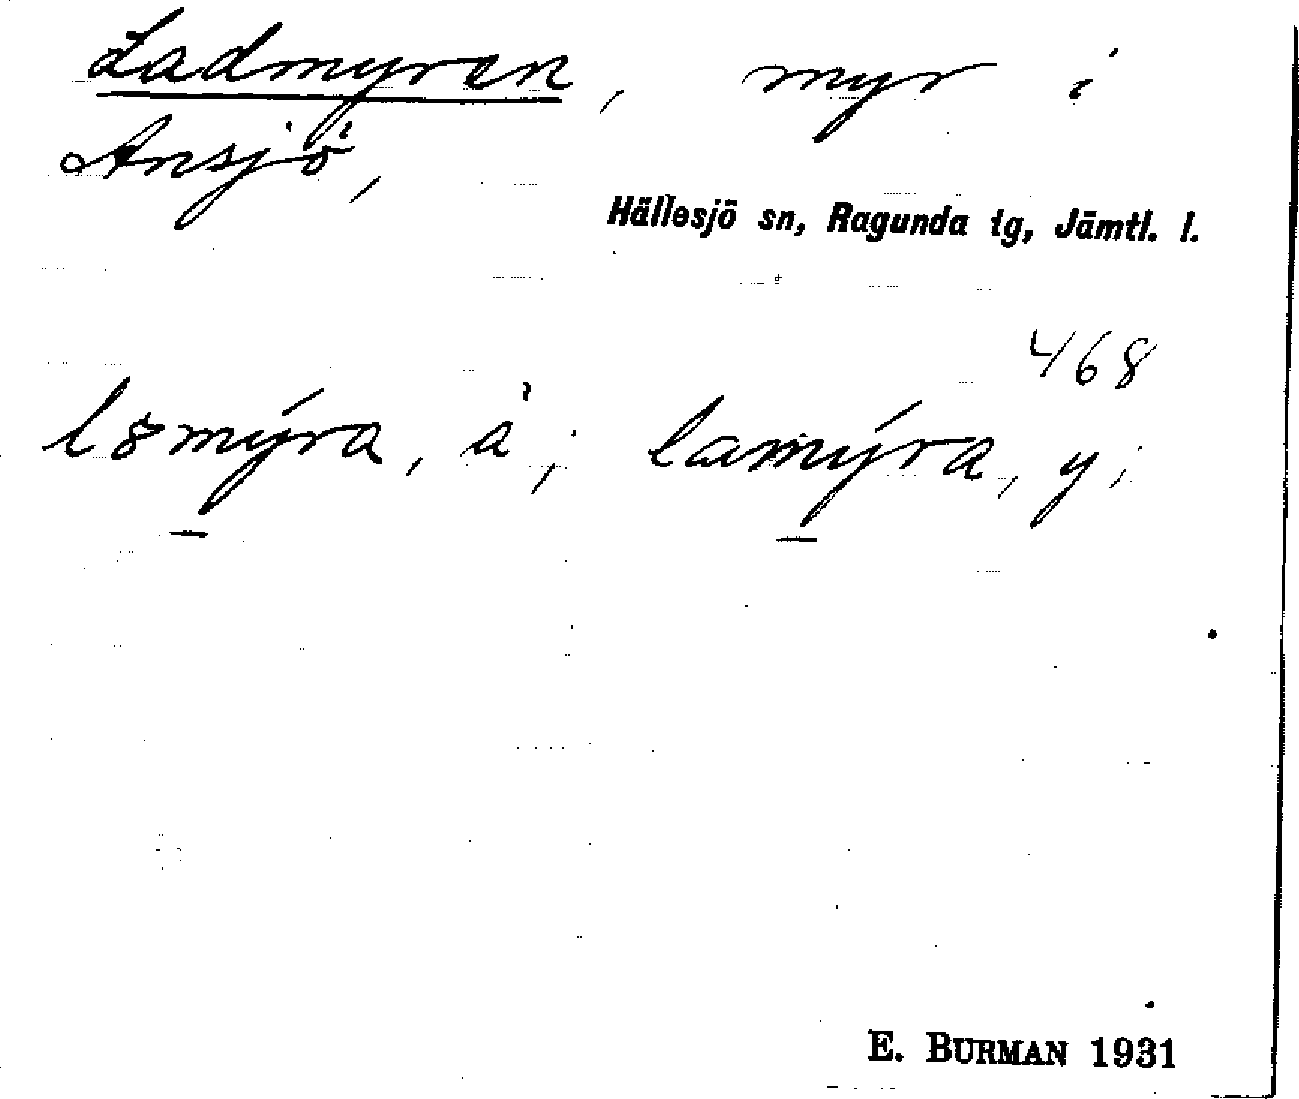 Ladmyren, myr i
Ansjö,
Hällesjö sn, Ragunda tg, Jämtl. l.
468
lamýra, y;
E. BURMAN 1931